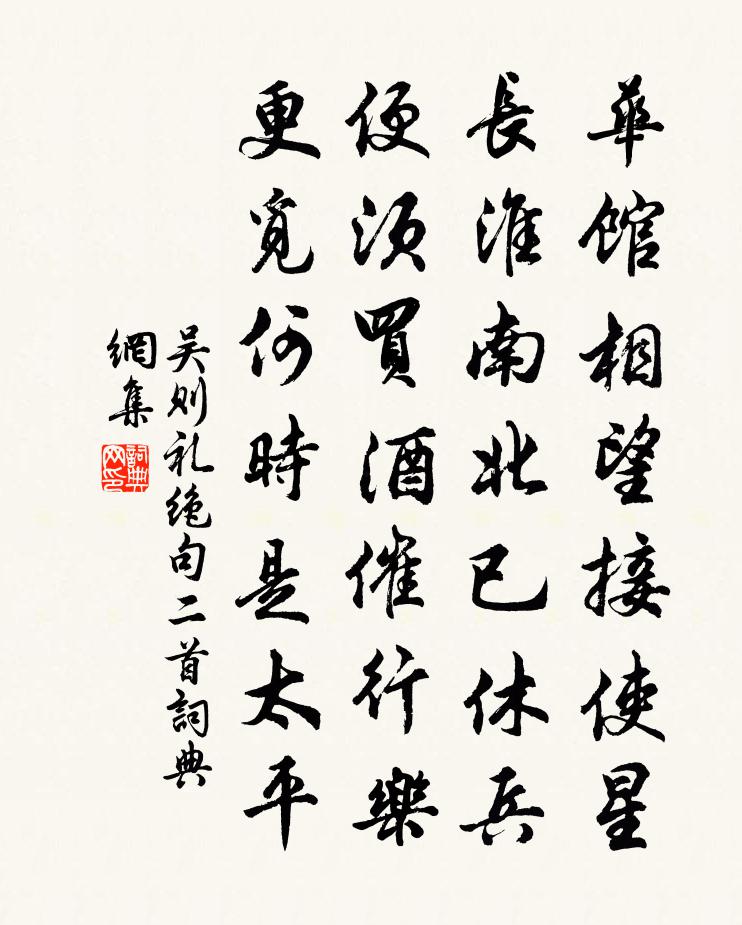 華館相望接使星
長淮南北已休兵
便須買酒催行樂
更覓何時是太平
吴則礼绝句二首詞典
網集
詞典网印